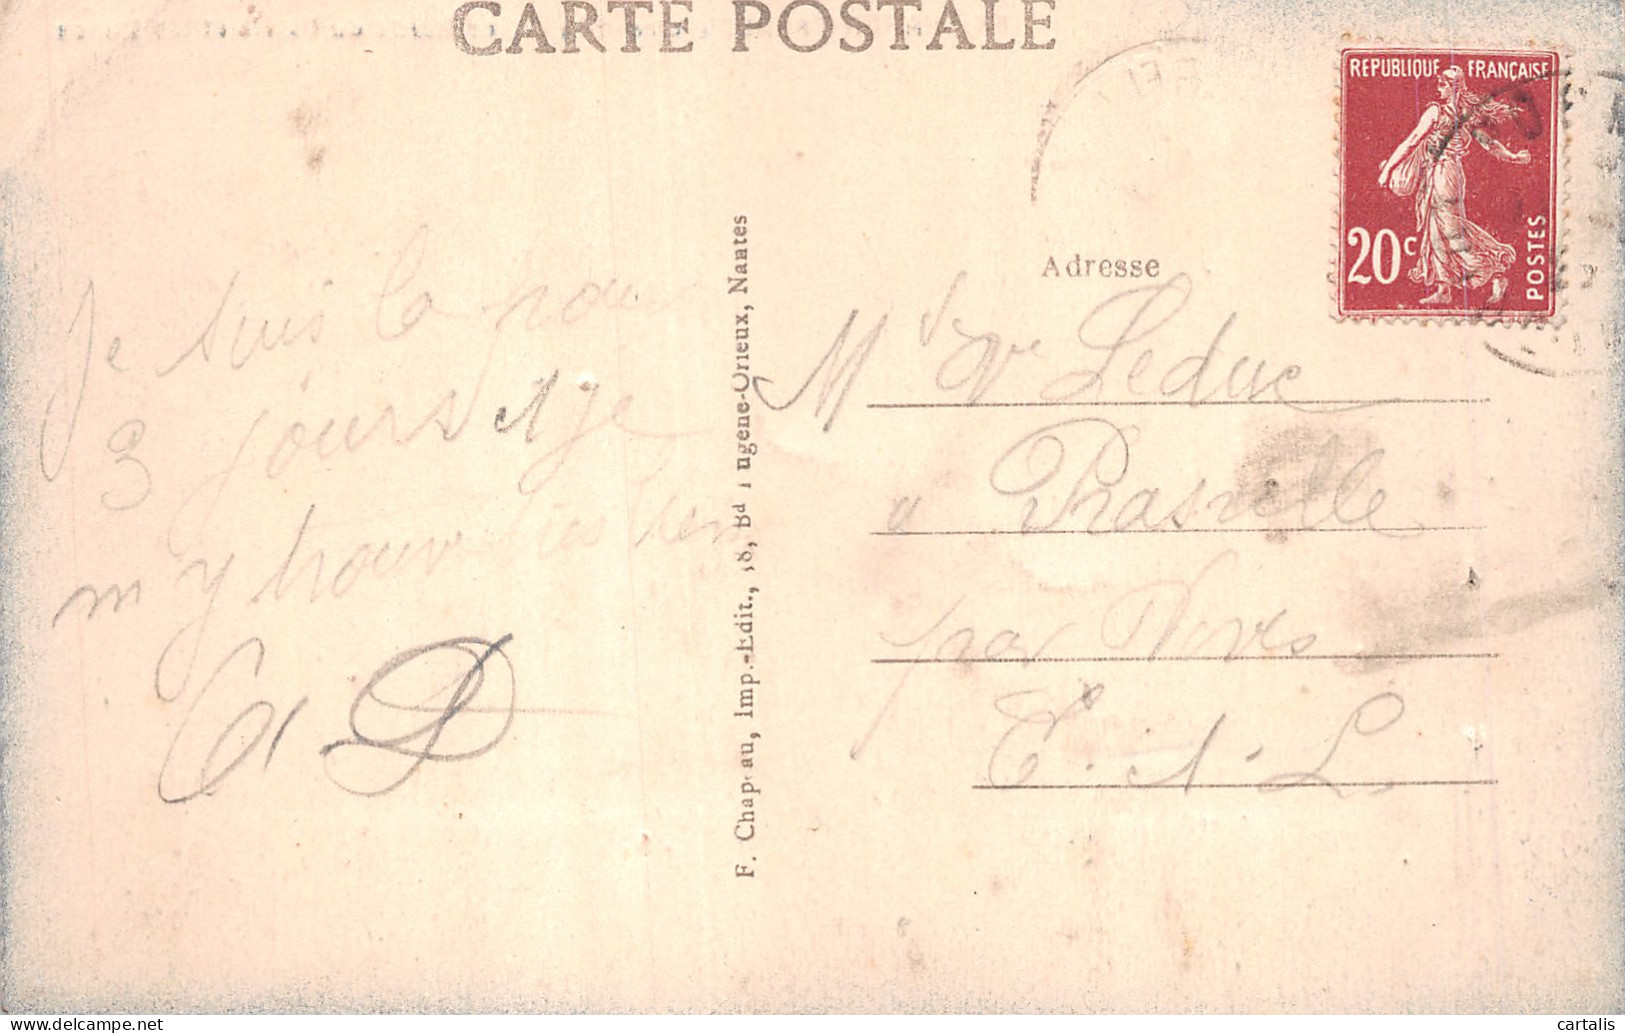 CARTE POSTALE
REPUBLIQUE FRANÇAISE
20c
POSTES
Adresse
Je suis la pour
3 jours et je
m y trouve très bien
F. Chapeau, Imp.-Edit., 18, Bd Eugène-Orieux, Nantes
M Leduc
a
par Vivés
E. A. L.
delcampe.net
cartalis